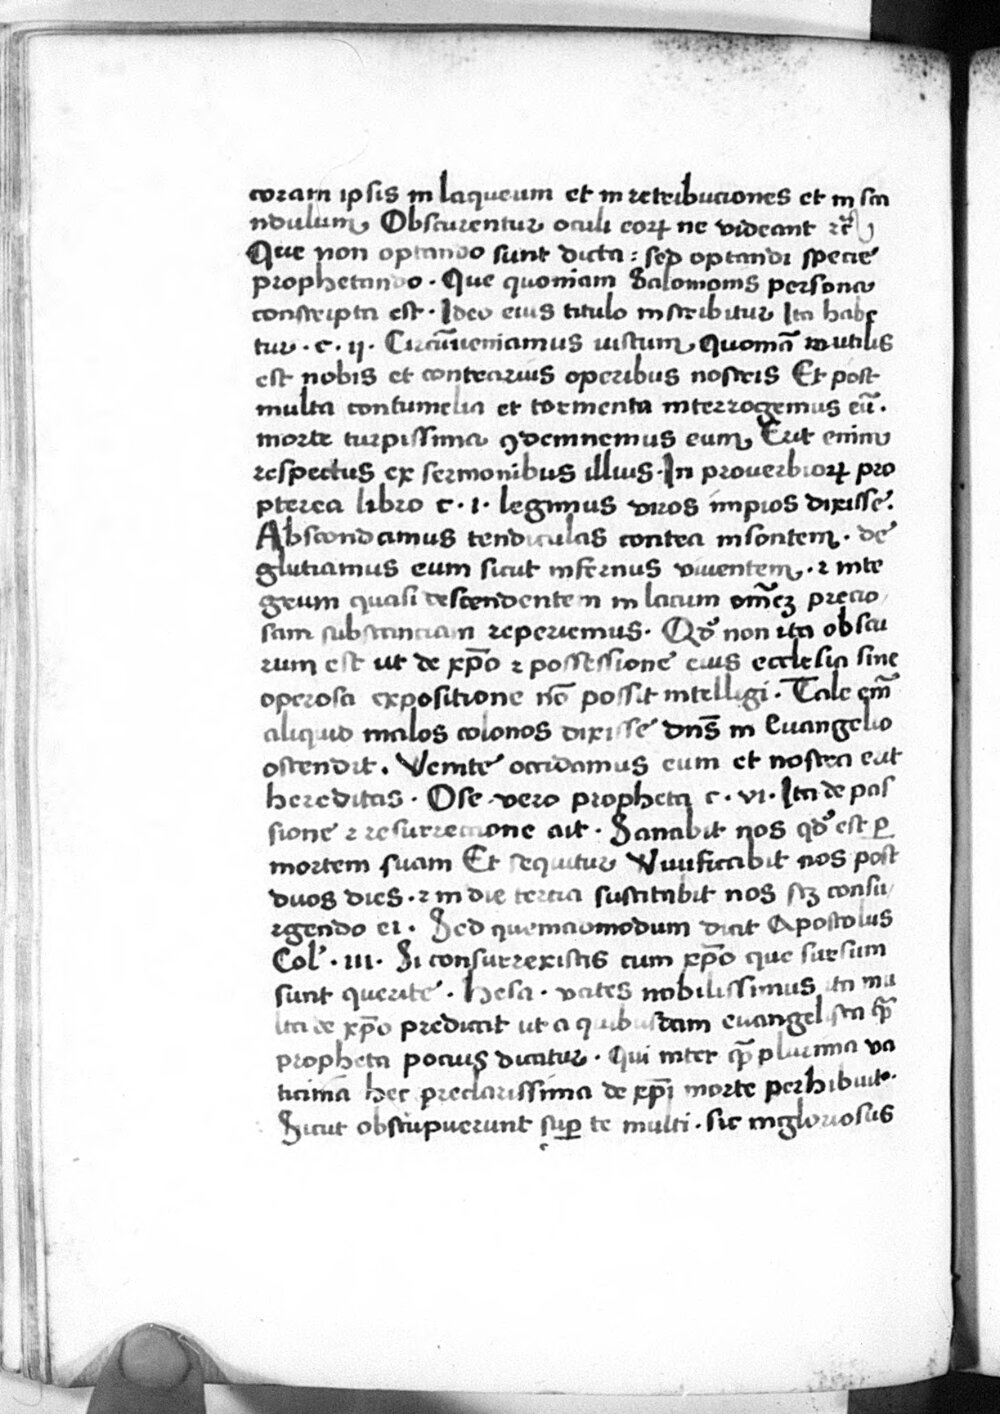 coram ipsis in laqueum et in retribuciones et in sca
ndulum Obscurentur oculi eoꝝ ne videant ⁊c̃
Que non optando sunt dicta : sed optandi specie
prophetando · Que quoniam Salomonis persona
conscripta est · Ideo eius titulo inscribitur Ita habe
tur · c · ij · Circũueniamus iustum Quomã inutilis
est nobis et contrarius operibus nostris Et post
multa contumelia et tormenta interrogemus eũ ·
morte turpissima ꝯdemnemus eum Erit enim
respectus ex sermonibus illius · In proverbioꝝ pro
pterea libro c · i · legimus viros impios dixisse ·
Abscondamus tendiculas contra insontem · de
glutiamus eum sicut infernus viventem · ⁊ inte
grum quasi descendentem in lacum om̃eʒ precio
sam substanciam reperiemus · Qd̛ non ita obscu
rum est ut de xp̃o ⁊ possessione eius ecclesia sine
operosa expositione nõ possit intelligi · Tale em̃
aliquid malos colonos dixisse dn̄s in Euangelio
ostendit . Venite occidamus eum et nostra erit
hereditas · Ose vero propheta c · vi · Ita de pas
sione ⁊ resurrectione ait · Sanabit nos qd̛ est ꝑ
mortem suam Et sequitur Viuificabit nos post
duos dies · ⁊ in die tertia suscitabit nos sꝫ consu
rgendo ei · Sed quemadmodum dicit Apostolus
Col̛ · iii · Si consurrexistis cum xp̃o que sursum
sunt querite · hesa · vates nobilissimus ita mu
lta de xp̃o predicit ut a quibusdam evangelista q̃ꝫ
propheta pocius dicatur · Qui inter q̃ꝫ plurima va
ticinia hec preclarissima de xp̃i morte perhibuit ·
Sicut obstupuerunt suꝑ te multi · sic ingloriosus